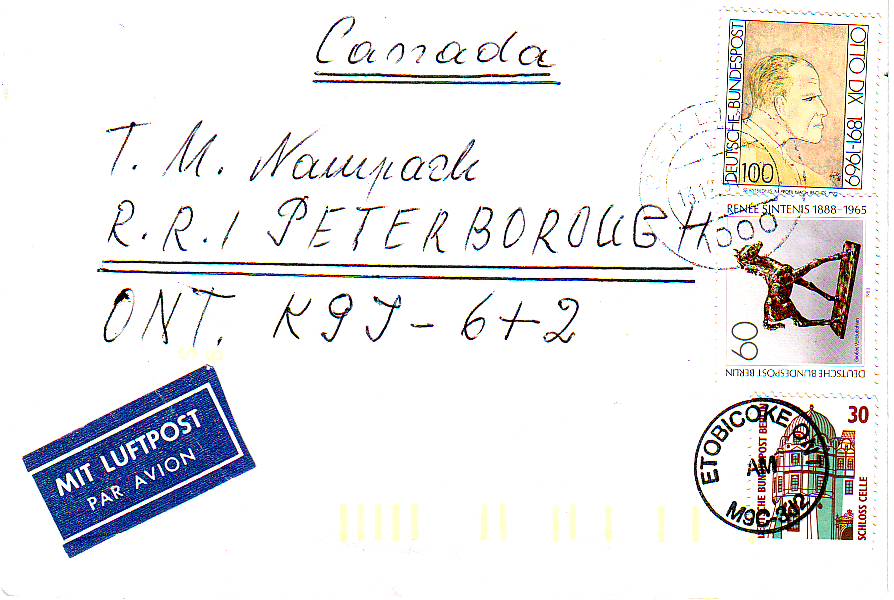 Canada
T. M. Nampack
R.R.1 PETERBOROUGH
ONT. K9J-6+2
MIT LUFTPOST
PAR AVION
DEUTSCHE BUNDESPOST
100
OTTO DIX 1891-1969
RENÉE SINTENIS 1888-1965
60
DEUTSCHE BUNDESPOST BERLIN
30
SCHLOSS CELLE
ETOBICOKE ONT
AM
M9C-3J2